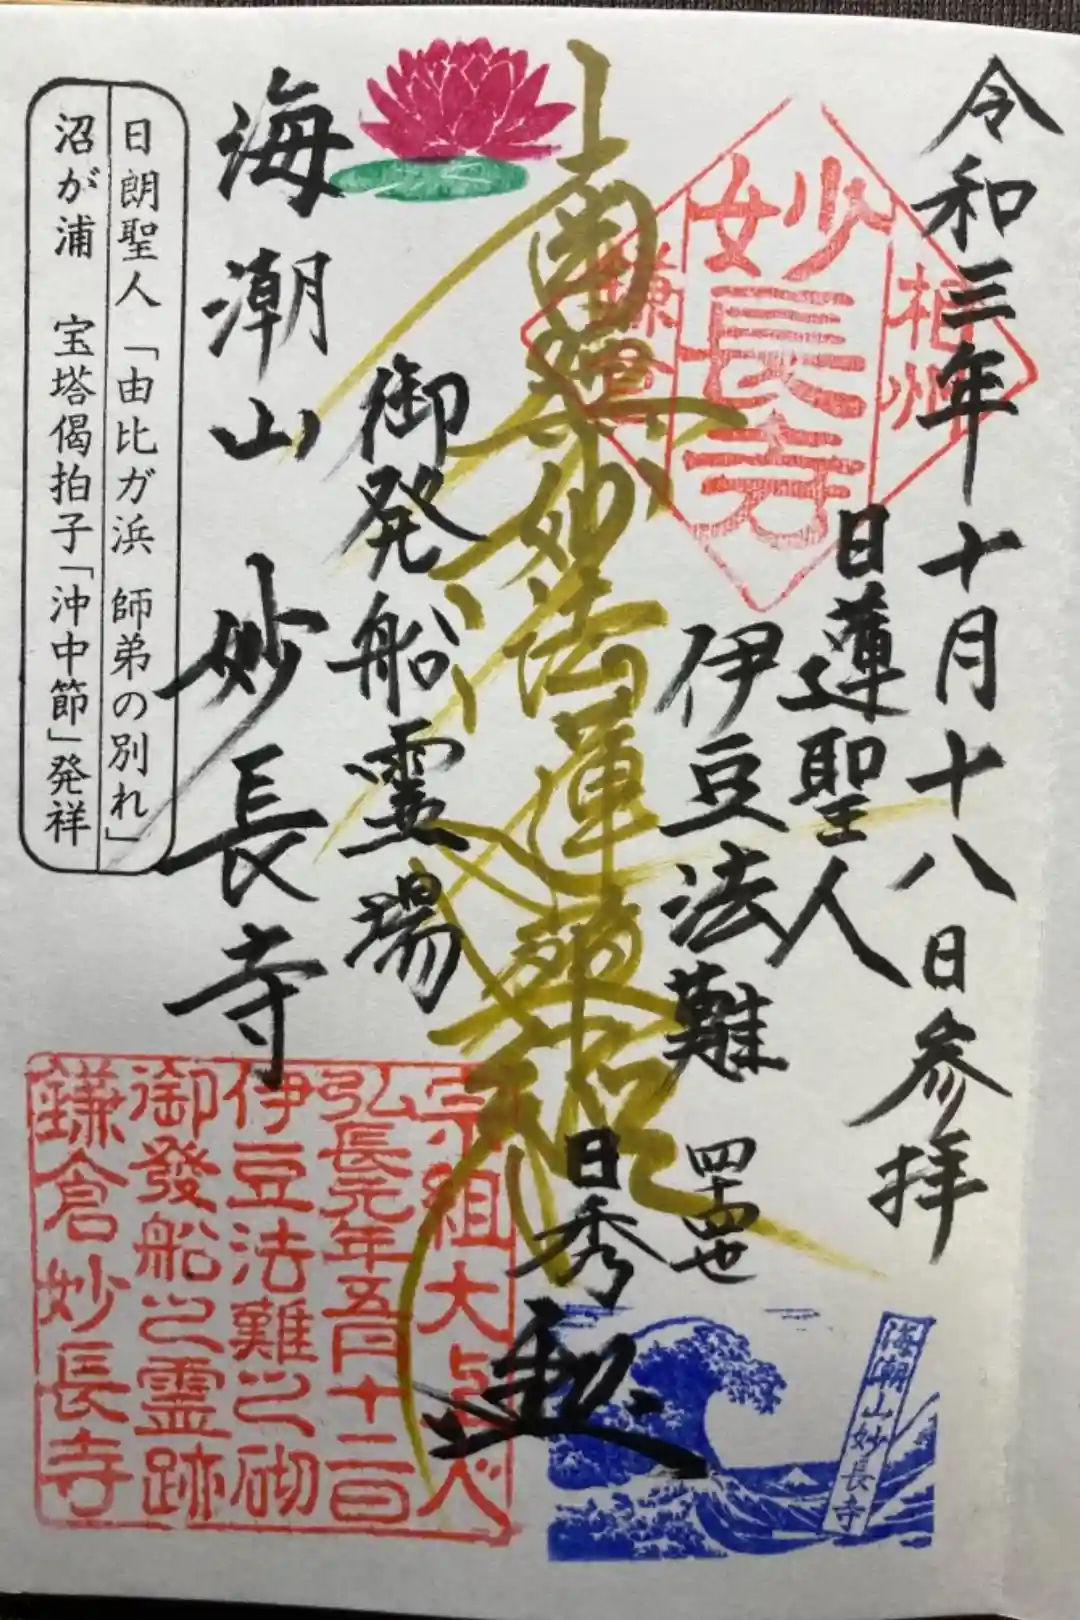 令和三年十月十八日参拝
相州
妙長寺
鎌倉
日蓮聖人
伊豆法難
四十四世
南無妙法蓮華経
日秀
御発船霊場
海潮山 妙長寺
日朗聖人「由比ガ浜 師弟の別れ」
沼が浦 宝塔偈拍子「沖中節」発祥
宗祖大上人
弘長元年五月十二日
伊豆法難之砌
御發船之霊跡
鎌倉妙長寺
海潮山妙長寺